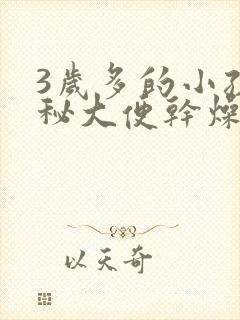 3歲多的小孩
秘大便幹燥
以天奇